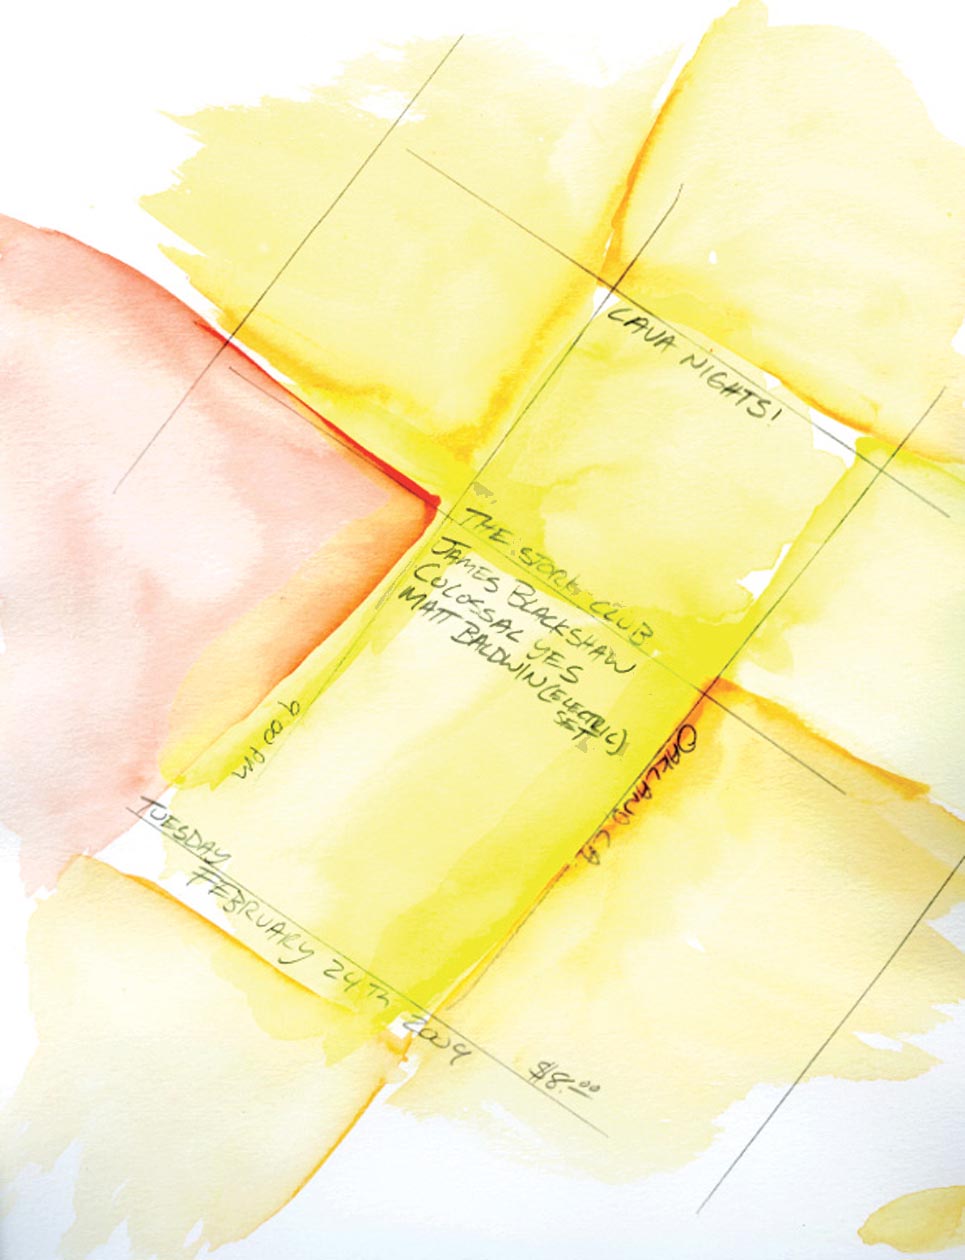 CAVA NIGHTS!
THE STORK CLUB
JAMES BLACKSHAW
COLOSSAL YES
MATT BALDWIN (ELECTRIC)
SET
OAKLAND CA.
9:00 PM
TUESDAY
FEBRUARY 24TH 2009
$8.00